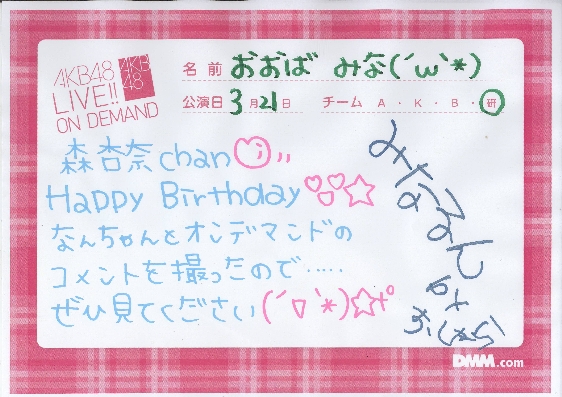 AKB48
LIVE!!
ON DEMAND
AKB
48
名前 おおば みな(´ω`*)
公演日 3月21日 チーム A・K・B・研
森杏奈chan
Happy Birthday ♡♡☆
なんちゃんとオンデマンドの
コメントを撮ったので‥‥‥
ぜひ見てください(´ロ`*)☆
みなるん
DMM.com